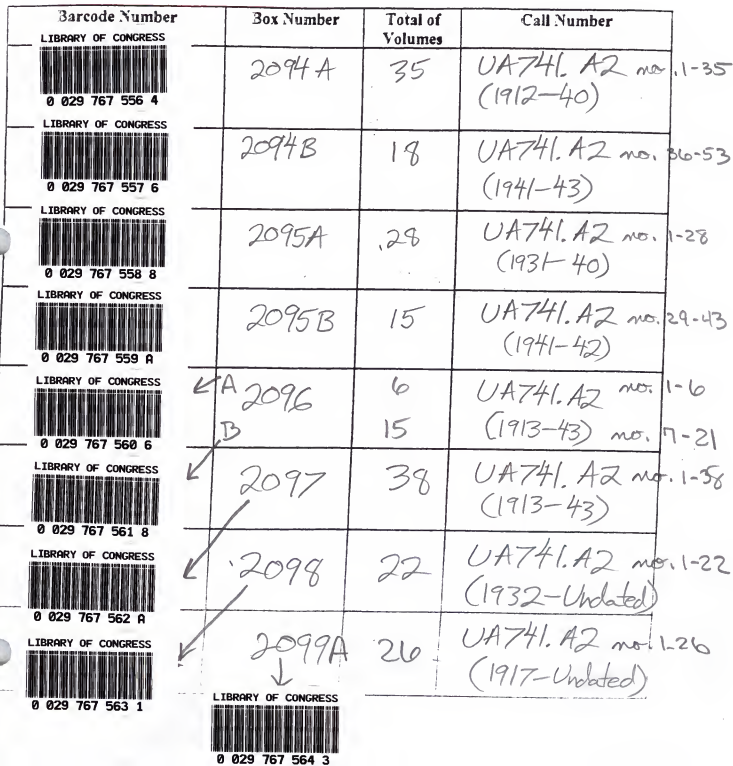 Barcode Number Box Number Total of Volumes Call Number
LIBRARY OF CONGRESS
0 029 767 556 4
2094A 35 UA741. A2 no. 1-35
(1912-40)
LIBRARY OF CONGRESS
0 029 767 557 6
2094B 18 UA741. A2 no. 36-53
(1941-43)
LIBRARY OF CONGRESS
0 029 767 558 8
2095A 28 UA741. A2 no. 1-28
(1931-40)
LIBRARY OF CONGRESS
0 029 767 559 A
2095B 15 UA741. A2 no. 29-43
(1941-42)
LIBRARY OF CONGRESS
0 029 767 560 6
A 2096 6 UA741. A2 no. 1-6
B 15 (1913-43) no. 7-21
LIBRARY OF CONGRESS
0 029 767 561 8
2097 38 UA741. A2 no. 1-38
(1913-43)
LIBRARY OF CONGRESS
0 029 767 562 A
2098 22 UA741. A2 no. 1-22
(1932-Undated)
LIBRARY OF CONGRESS
0 029 767 563 1
2099A 26 UA741. A2 no. 1-26
(1917-Undated)
LIBRARY OF CONGRESS
0 029 767 564 3